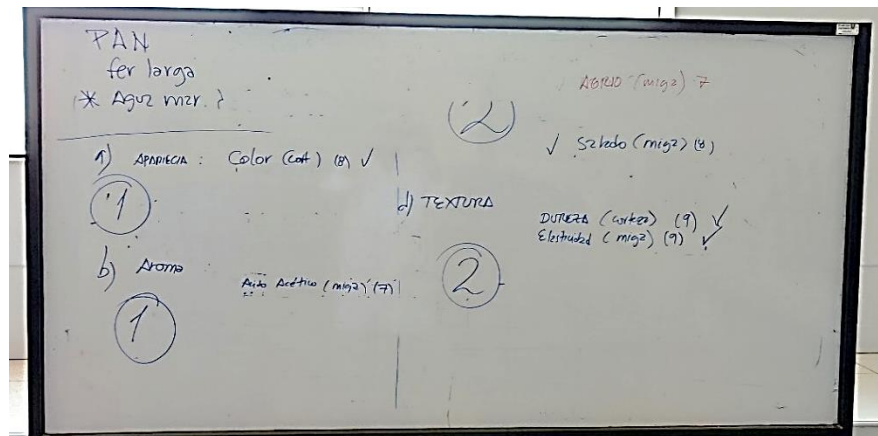 PAN
fer larga
* Agua mar. ?
a) APARIECIA : Color (Cort) (8) ✓
1
b) Aroma
Acido Acético (miga) (7)
1
(2)
AGRIO (miga) 7
✓ Salado (miga) (8)
d) TEXTURA
DUREZA (corteza) (9) ✓
Elasticidad (miga) (9) ✓
2